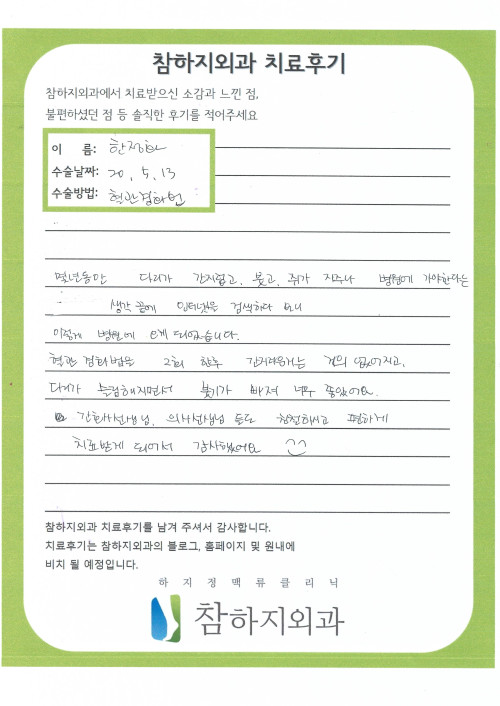 참하지외과 치료후기
참하지외과에서 치료받으신 소감과 느낀 점,
불편하셨던 점 등 솔직한 후기를 적어주세요
이 름: 한정화
수술날짜: 20. 5. 13
수술방법: 혈관경화법
몇년동안 다리가 간지럽고, 붓고, 쥐가 자주나 병원에 가야한다는
생각 끝에 인터넷을 검색하다 보니
이렇게 병원에 오게 되었습니다.
혈관 경화법을 2회 한후 간지러움증는 거의 없어지고,
다리가 슬림해지면서 붓기가 빠져 너무 좋았어요.
간호사선생님, 의사선생님 등도 친절하시고 편하게
치료받게 되어서 감사했어요
참하지외과 치료후기를 남겨 주셔서 감사합니다.
치료후기는 참하지외과의 블로그, 홈페이지 및 원내에
비치 될 예정입니다.
하지정맥류클리닉
참하지외과